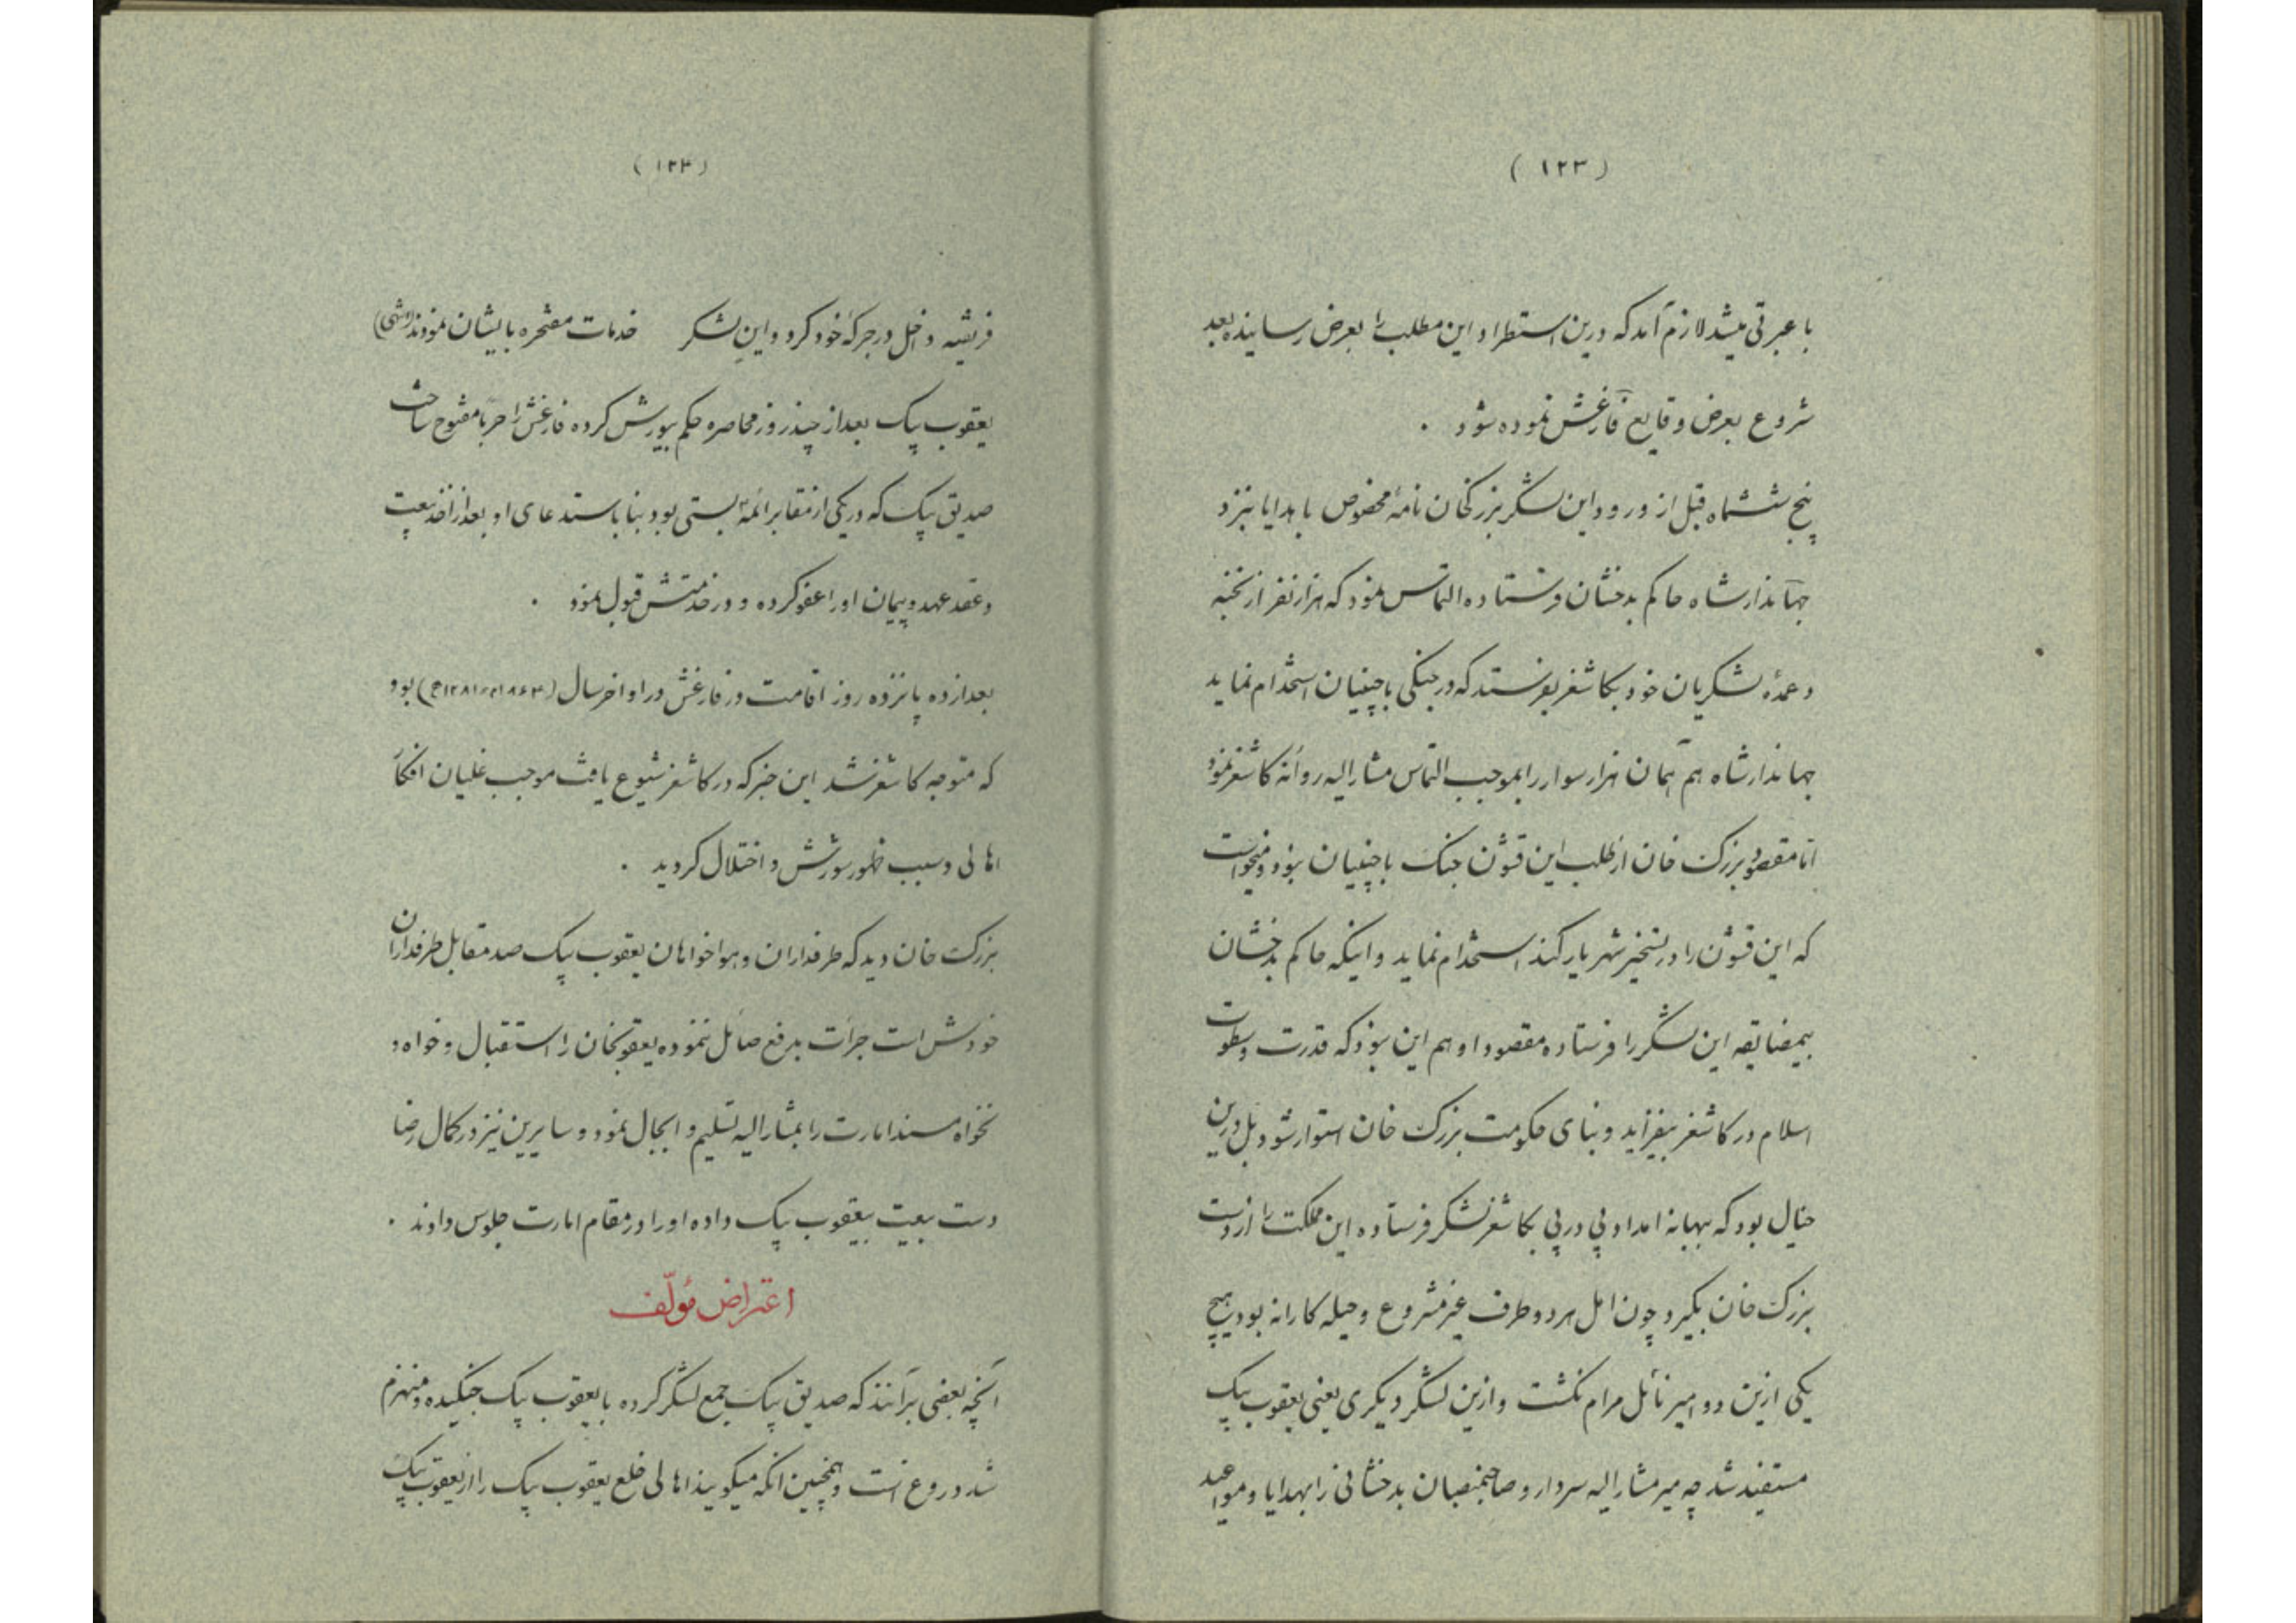 (۱۲۳)
با عبرتی میشد لازم آمد که درین استطراد این مطلب را بعرض رسانیده بعد
شروع بعرض وقایع فارغش نموده شود .
پنج ششماه قبل از ورود این لشکر بزرکخان نامهٔ مخصوص با هدایا بنزد
جهاندارشاه حاکم بدخشان فرستاده التماس نمود که هزار نفر از نخبه
و عمدهٔ لشکریان خود بکاشغر بفرستد که در جنکی باچینیان استخدام نماید
جهاندارشاه هم همان هزار سوار را بموجب التماس مشارالیه روانهٔ کاشغر نمود
اما مقصود بزرک خان از طلب این قشون جنک باچینیان نبود و میخواست
که این قشون را در تسخیر شهر یارکند استخدام نماید و اینکه حاکم بدخشان
بیمضایقه این لشکر را فرستاده مقصود او هم این نبود که قدرت و سطوت
اسلام در کاشغر بیفزاید و بنای حکومت بزرک خان استوار شود بل درین
خیال بود که ببهانهٔ امداد پی در پی بکاشغر لشکر فرستاده این مملکت را از دست
بزرک خان بکیرد چون امل هر دو طرف غیر مشروع و حیله کارانه بود هیچ
یکی ازین دو امیر نائل مرام نکشت و ازین لشکر دیکری یعنی یعقوب بیک
مستفید شد چه میر مشارالیه سردار و صاحبمنصبان بدخشانی را بهدایا و مواعید
(۱۲۴)
فریفته داخل در جرکهٔ خود کرد و این لشکر خدمات مفتخره بایشان نمودند (انتهی)
یعقوب بیک بعد از چند روز محاصره حکم بیورش کرده فارغش را حربا مفتوح ساخت
صدیق بیک که در یکی از مقابر ائمه بستی بود بنا باستدعای او بعد از اخذ بیعت
و عقد عهد و پیمان او را عفو کرده و در خدمتش قبول نمود .
بعد از ده پانزده روز اقامت در فارغش در اواخر سال (۱۲۸۱ ۱۸۶۴) بود
که متوجه کاشغر شد این خبر که در کاشغر شیوع یافت موجب غلیان افکار
اهالی و سبب ظهور شورش و اختلال کردید .
بزرک خان دید که طرفداران و هواخواهان یعقوب بیک صد مقابل طرفداران
خودش است جرأت بدفع صائل ننموده یعقوبخان را استقبال و خواه و
نخواه مسند امارت را بمشارالیه تسلیم و ابجال نمود و سایرین نیز در کمال رضا
دست بیعت بیعقوب بیک داده او را در مقام امارت جلوس دادند .
اعتراض مؤلف
آنچه بعضی برآنند که صدیق بیک جمع لشکر کرده با یعقوب بیک جنکیده و منهزم
شد دروغ است و همچنین آنکه میکویند اهالی خلع یعقوب بیک را از یعقوب بیک